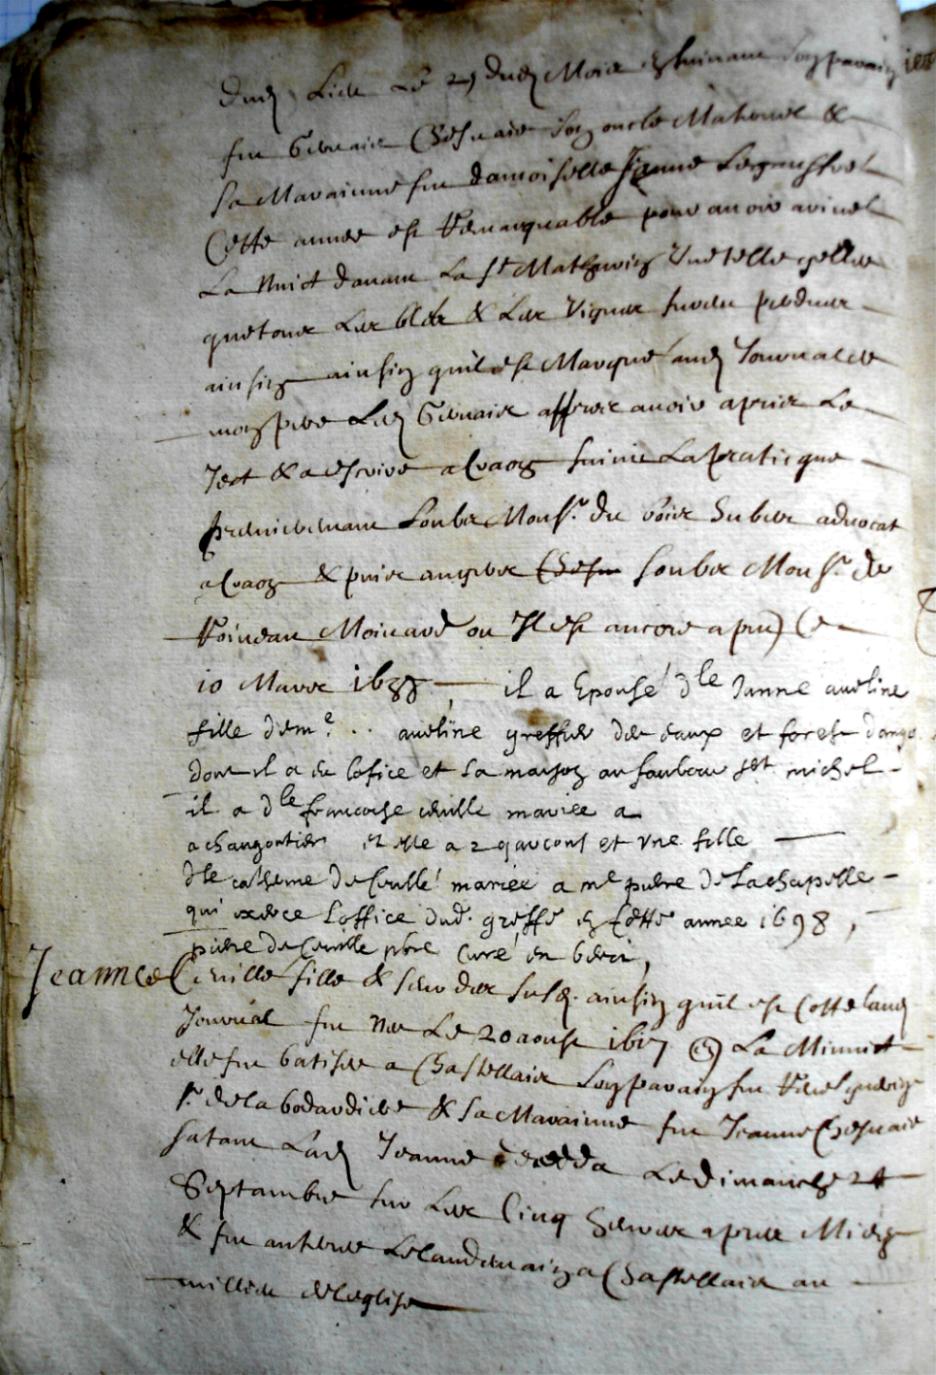 dud lieu le 29 dud Mois & huinant son parain
fut Gervais Chesnaie son oncle Maternel &
sa Maraiinne fut damoiselle Jeanne
Cette année est Remarquable pour avoir arivé
La Nuict davant La St Mathurin Une telle gellée
que tous Les bleds & Les Vignes furent perdues
ainsiy ainsiy quil est Marqué aud Journal de
mon pere Led Gervais apres avoir apris Le
Ject & a escrire a Craon suivit La pratique
premierement soubs Monsr. du bois advocat
a Craon & puis angers soubs Monsr. de
Moinard ou Il est ancore apnt Ce
10 Mars 1688 il a Epousé dle Janne aveline
fille de me. .. aveline greffier des eaux et forest dange
dont il a eu lofice et sa maison au faubour st michel
il a dle francoise mariée a
a changontier et elle a 2 garcons et une fille
dle catherine de Ceville mariée a me piere de Lachapelle
qui exerce Loffice dud. greffe en Cette annee 1698,
piere de Ceville pbre Curé en berri,
Jeanne Ceville fille & seur des susd. ainsiy quil est Cotté aud
Journal fut Nee Le 20 aoust 1657 La Minuict
elle fut batisée a Chastellais son parain fut
sr. de la bodardiere & sa Maraiinne fut Jeanne Chesnaie
sa tante Lad Jeanne deceda Le dimanche 24
Septambre sur Les Cinq heures apres Midy
& fut anterree Le landemain a Chastellais au
millieu de leglise